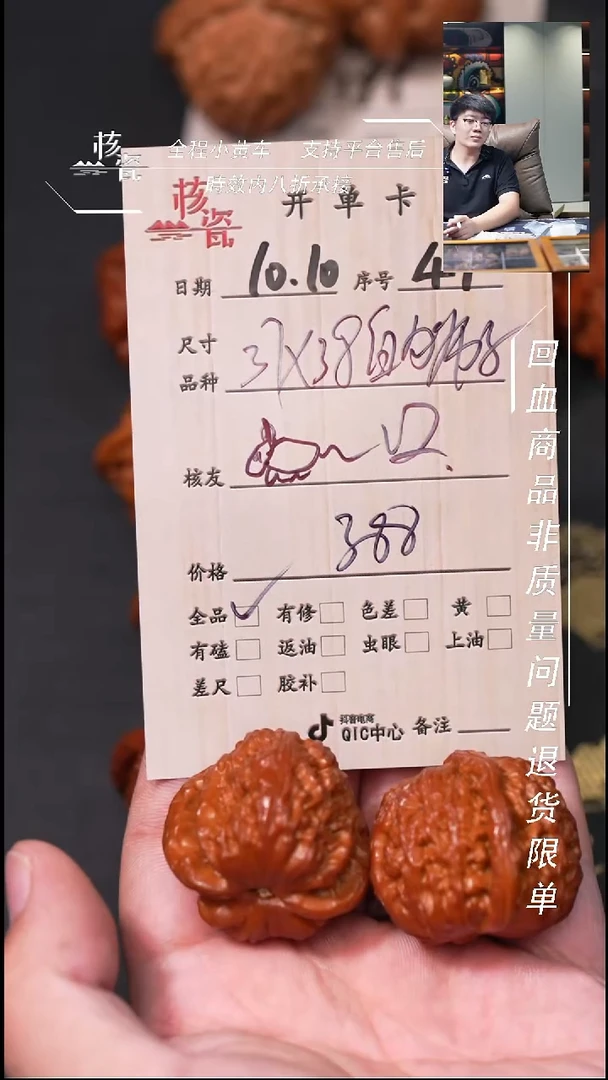 核瓷
全程小黄车 支持平台售后
時效内八折承接
核瓷
开单卡
日期 10.10 序号 41
尺寸 37X38
品种
核友
价格 388
全品 ✓ 有修 色差 黄
有磕 返油 虫眼 上油
差尺 胶补
抖音电商
QIC中心 备注
回血商品非质量问题退货限单